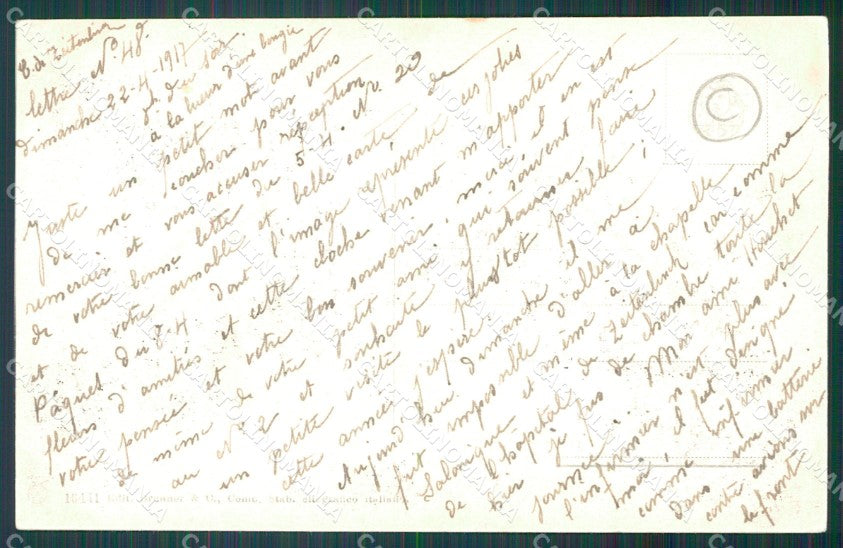 C. de Zeitenlick
lettre No. 48.
dimanche 22-4-1917
7h du soir
à la lueur d'une bougie
Juste un petit mot avant
de me coucher pour vous
remercier et vous accuser réception
de votre bonne lettre du 5-4. No. 23
et de votre aimable et belle carte de
Pâques du 7-4 dont l'image représente ces jolies
fleurs d'amitiés et cette cloche venant m'apporter
votre pensée et votre bon souvenir. merci il en est
de même de votre petit ami qui souvent pense
au No. 2 et souhaite y retourner faire
un petite visite le plustot possible;
cette année j'espère
Aujourd'hui dimanche il me
fut impossible d'aller à
Salonique et même à la chapelle
de l'hospital de Zeitenlick car comme
hier je fus de chambre toute la
journée. Mon ami Houchet
l'infirmier n'est plus avec
moi, il fut designé
comme infirmier
dans une batterie
contre avions sur
le front
10141 Edit. & C., Como, Stab.
C
CARTOLINOMANIA